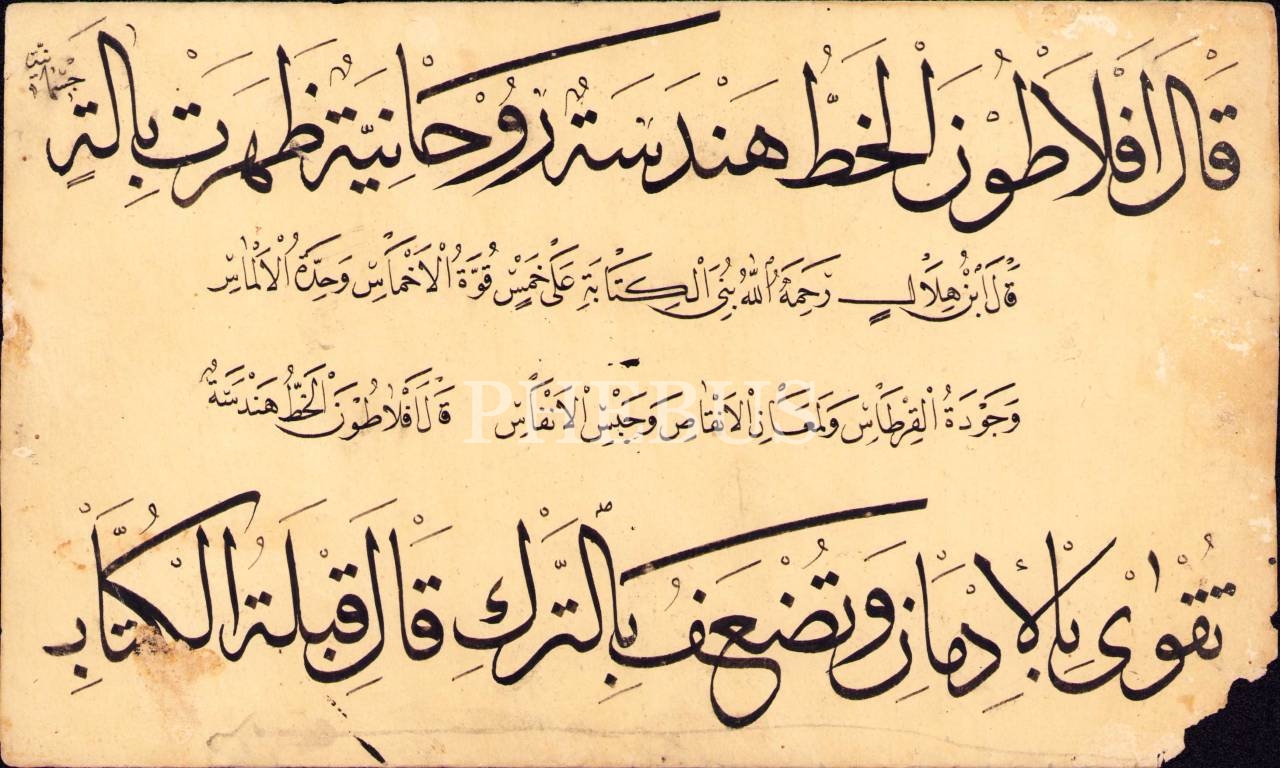 قَالَ اَفْلَاطُونْ اَلْخَطُّ هَنْدَسَةٌ رُوْحَانِيَّةٌ ظَهَرَتْ بِالَةٍ
جِسْمَانِيَّة
قَالَ ابْنُ هِلَالٍ رَحِمَهُ اللّٰهُ بُنِىَ الْكِتَابَةِ عَلَى خَمْسٍ قُوَّةُ الْاَخْمَاسِ وَحِدَّةُ الْاَلْمَاسِ
وَجَوْدَةُ الْقِرْطَاسِ وَلَمَعَانِ الْاَنْقَاصِ وَحَبْسِ الْاَنْفَاسِ قَالَ اَفْلَاطُونْ اَلْخَطُّ هَنْدَسَةٌ
PHEBUS
تُقْوٰى بِالْاِدْمَانِ وَتُضْعَفُ بِالتَّرْكِ قَالَ قِبْلَةُ الْكُتَّابِ